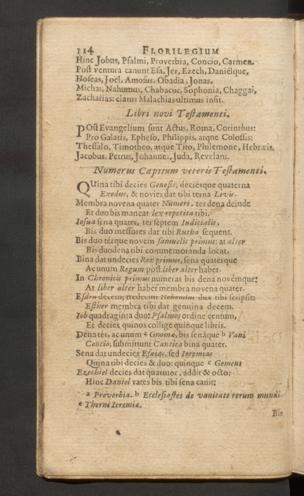 114 FLORILEGIUM
Hinc Jobus, Psalmi, Proverbia, Concio, Carmen.
Post ventura canunt Esa. Jer, Ezech, Daniélque,
Hoseas, Joël. Amosus. Obadia, Jonas.
Michas, Nahumus, Chabacuc, Sophonia, Chaggai,
Zacharias: clarus Malachias ultimus insit.
Libri novi Testamenti.
POst Evangelium sunt Actus, Roma, Corinthus:
Pro Galatis, Epheso, Philippis, atque Colossis:
Thessalo, Timotheo, atque Tito, Philemone, Hebraeis.
Jacobus. Petrus, Johannes, Juda, Revelans.
Numerus Capitum veteris Testamenti.
QUina tibi decies Genesis, deciésque quaterna
Exodus, & novies dat tibi terna Levis.
Membra novena quater Numeri, ter dena deinde
Et duo bis mancat lex repetita tibi.
Josua sena quater, ter septem Judicialis,
Bis duo messures dat tibi Rutha sequent.
Bis duo térque novem Samuelis primus: at alter
Bis duodena tibi commemoranda locat.
Bina dat undecies Rex primus, sena quatérque
Ac unum Regum post liber alter habet.
In Chronicis primus numerat bis dena novémque:
At liber alter habet membra novena quater.
duo tibi scripsit:
Esther membra tibi dat gemina decem.
Job quadraginta duo: Psalmos ordine centum,
Et decies quinos collige quinque libris.
Dena ter, ac unum a Gnomae, bis senáque b Vani
Concio; subsiniunt Cantica bina quater.
Sena dat undecies Esaias, sed Ieremias
Quina tibi decies & duo: quinque c Gemens
Ezechiel decies dat quatuor, addit & octo:
Hinc Daniel vates bis tibi sena canit:
a Proverbia. b Ecclesiastes de vanitate rerum mundi
c Threni Ieremiae.
Bis